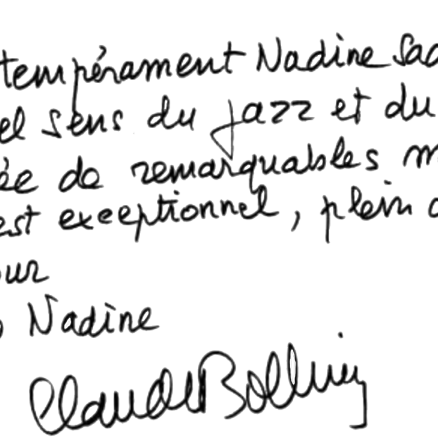 tempérament Nadine Sac
el sens du jazz et du
ée de remarquables m
est exceptionnel, plein d
ur
Nadine
Claude Bolling